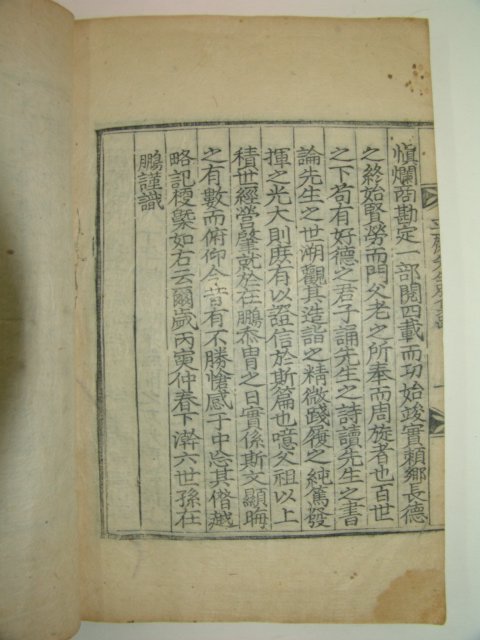 愼爛商勘定一部閱四載而功始竣實賴鄉長德
之終始賢勞而門父老之所奉而周旋者也百世
之下苟有好德之君子誦先生之詩讀先生之書
論先生之世溯觀其造詣之精微踐履之純篤發
揮之光大則庶有以證信於斯篇也噫父祖以上
積世經營肇就於在鵬忝冑之日實係斯文顯晦
之有數而俯仰今昔有不勝愴感于中忘其僭越
略記梗槩如右云爾歲丙寅仲春下澣六世孫在
鵬謹識